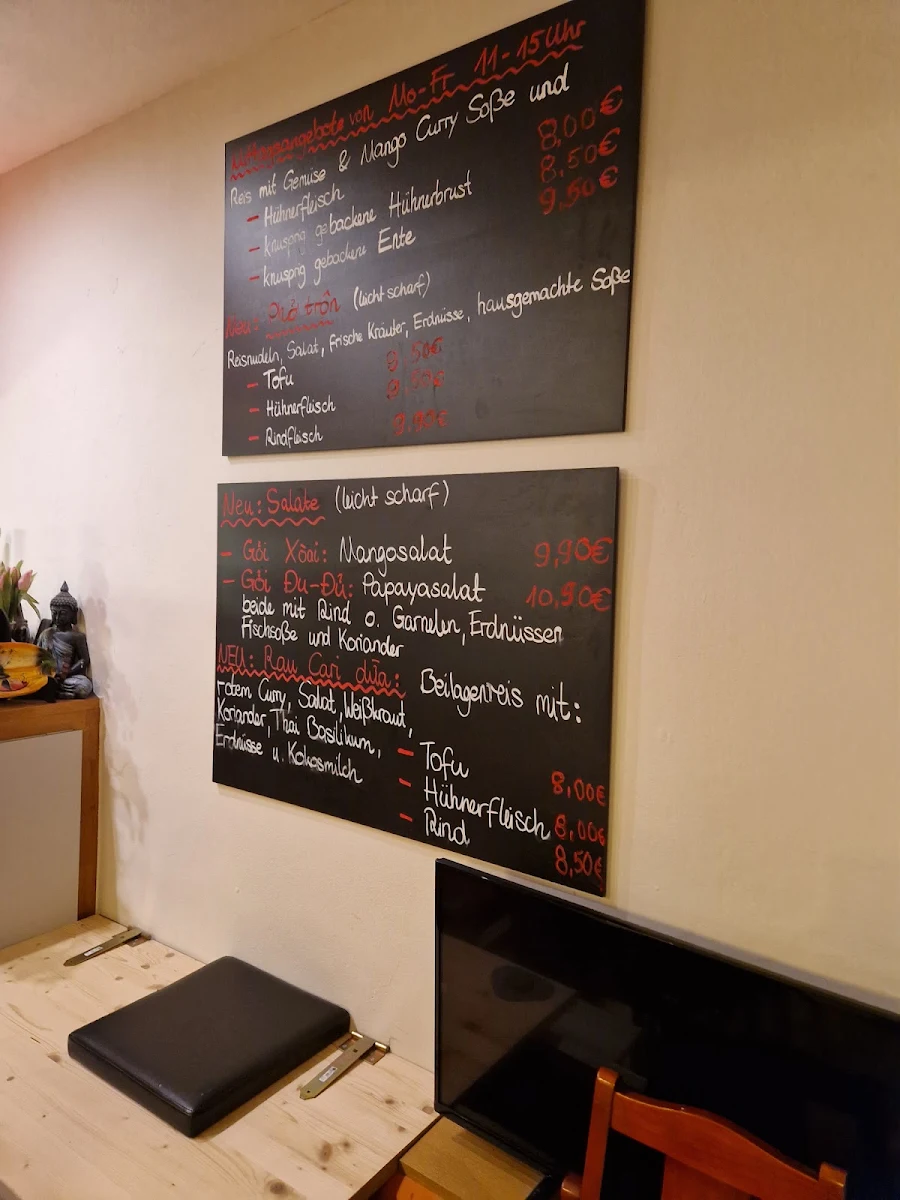 Mittagsangebote von Mo-Fr 11-15 Uhr
Reis mit Gemüse & Mango Curry Soße und
- Hühnerfleisch 8,00€
- knusprig gebackene Hühnerbrust 8,50€
- knusprig gebackene Ente 9,50€
Neu: Phở trộn (leicht scharf)
Reisnudeln, Salat, frische Kräuter, Erdnüsse, hausgemachte Soße
- Tofu 9,50€
- Hühnerfleisch 9,50€
- Rindfleisch 9,90€
Neu: Salate (leicht scharf)
- Gỏi Xòai: Mangosalat 9,90€
- Gỏi Đu-Đủ: Papayasalat 10,90€
beide mit Rind o. Garnelen, Erdnüssen
Fischsoße und Koriander
NEU: Rau Cari dừa: Beilagenreis mit:
rotem Curry, Salat, Weißkraut,
Koriander, Thai Basilikum,
Erdnüsse u. Kokosmilch
- Tofu 8,00€
- Hühnerfleisch 8,00€
- Rind 8,50€